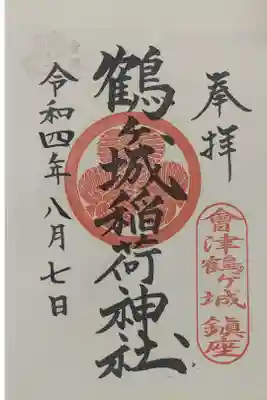 奉拝
會津鶴ヶ城鎮座
鶴ヶ城稲荷神社
令和四年八月七日